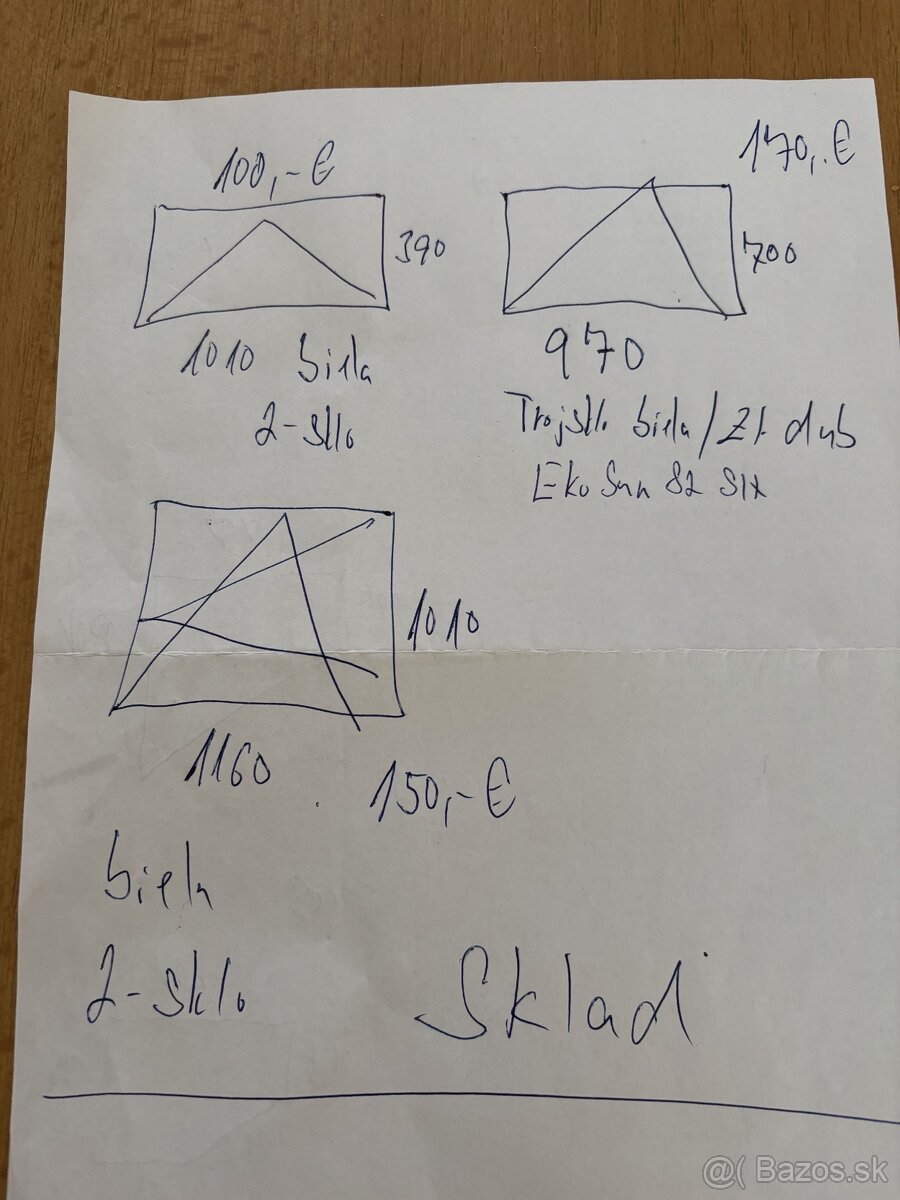 100,-€
390
1010 biela
2-sklo
170,.€
700
970
Trojsklo biela/Zl. dub
Eko Sun 82 Six
1010
1160
150,-€
biela
2-sklo
Sklad
@( Bazos.sk